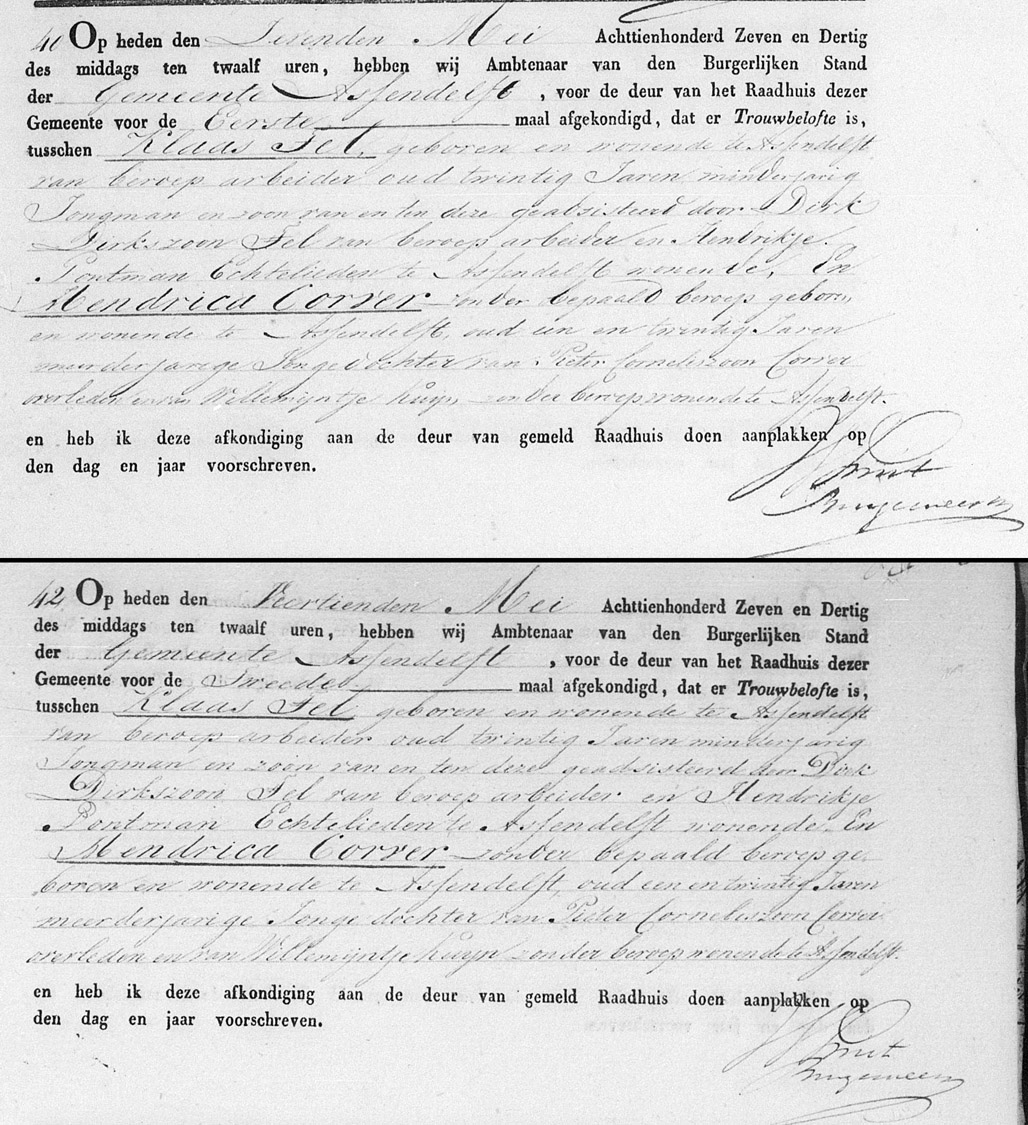 40 Op heden den Zevenden Mei Achttienhonderd Zeven en Dertig
des middags ten twaalf uren, hebben wij Ambtenaar van den Burgerlijken Stand
der Gemeente Assendelft, voor de deur van het Raadhuis dezer
Gemeente voor de Eerste maal afgekondigd, dat er Trouwbelofte is,
tusschen Klaas Fel, geboren en wonende te Assendelft
van beroep arbeider oud twintig Jaren minderjarig
Jongman en zoon van en ten deze geadsisteerd door Dirk
Dirkszoon Fel van beroep arbeider en Hendrikje
Poutman Echtelieden te Assendelft wonende, En
Hendrica Correr zonder bepaald beroep geboren
en wonende te Assendelft, oud een en twintig Jaren
meerderjarige Jonge dochter van Pieter Corneliszoon Correr
overleden en van Willemijntje Kuijn zonder beroep wonende te Assendelft.
en heb ik deze afkondiging aan de deur van gemeld Raadhuis doen aanplakken op
den dag en jaar voorschreven.
Smit
Burgemeester
42 Op heden den Veertienden Mei Achttienhonderd Zeven en Dertig
des middags ten twaalf uren, hebben wij Ambtenaar van den Burgerlijken Stand
der Gemeente Assendelft, voor de deur van het Raadhuis dezer
Gemeente voor de Tweede maal afgekondigd, dat er Trouwbelofte is,
tusschen Klaas Fel geboren en wonende te Assendelft
van beroep arbeider oud twintig Jaren minderjarig
Jongman en zoon van en ten deze geadsisteerd door Dirk
Dirkszoon Fel van beroep arbeider en Hendrikje
Poutman Echtelieden te Assendelft wonende. En
Hendrica Correr zonder bepaald beroep ge-
boren en wonende te Assendelft, oud een en twintig Jaren
meerderjarige Jonge dochter van Pieter Corneliszoon Correr
overleden en van Willemijntje Kuijn zonder beroep wonende te Assendelft.
en heb ik deze afkondiging aan de deur van gemeld Raadhuis doen aanplakken op
den dag en jaar voorschreven.
Smit
Burgemeester